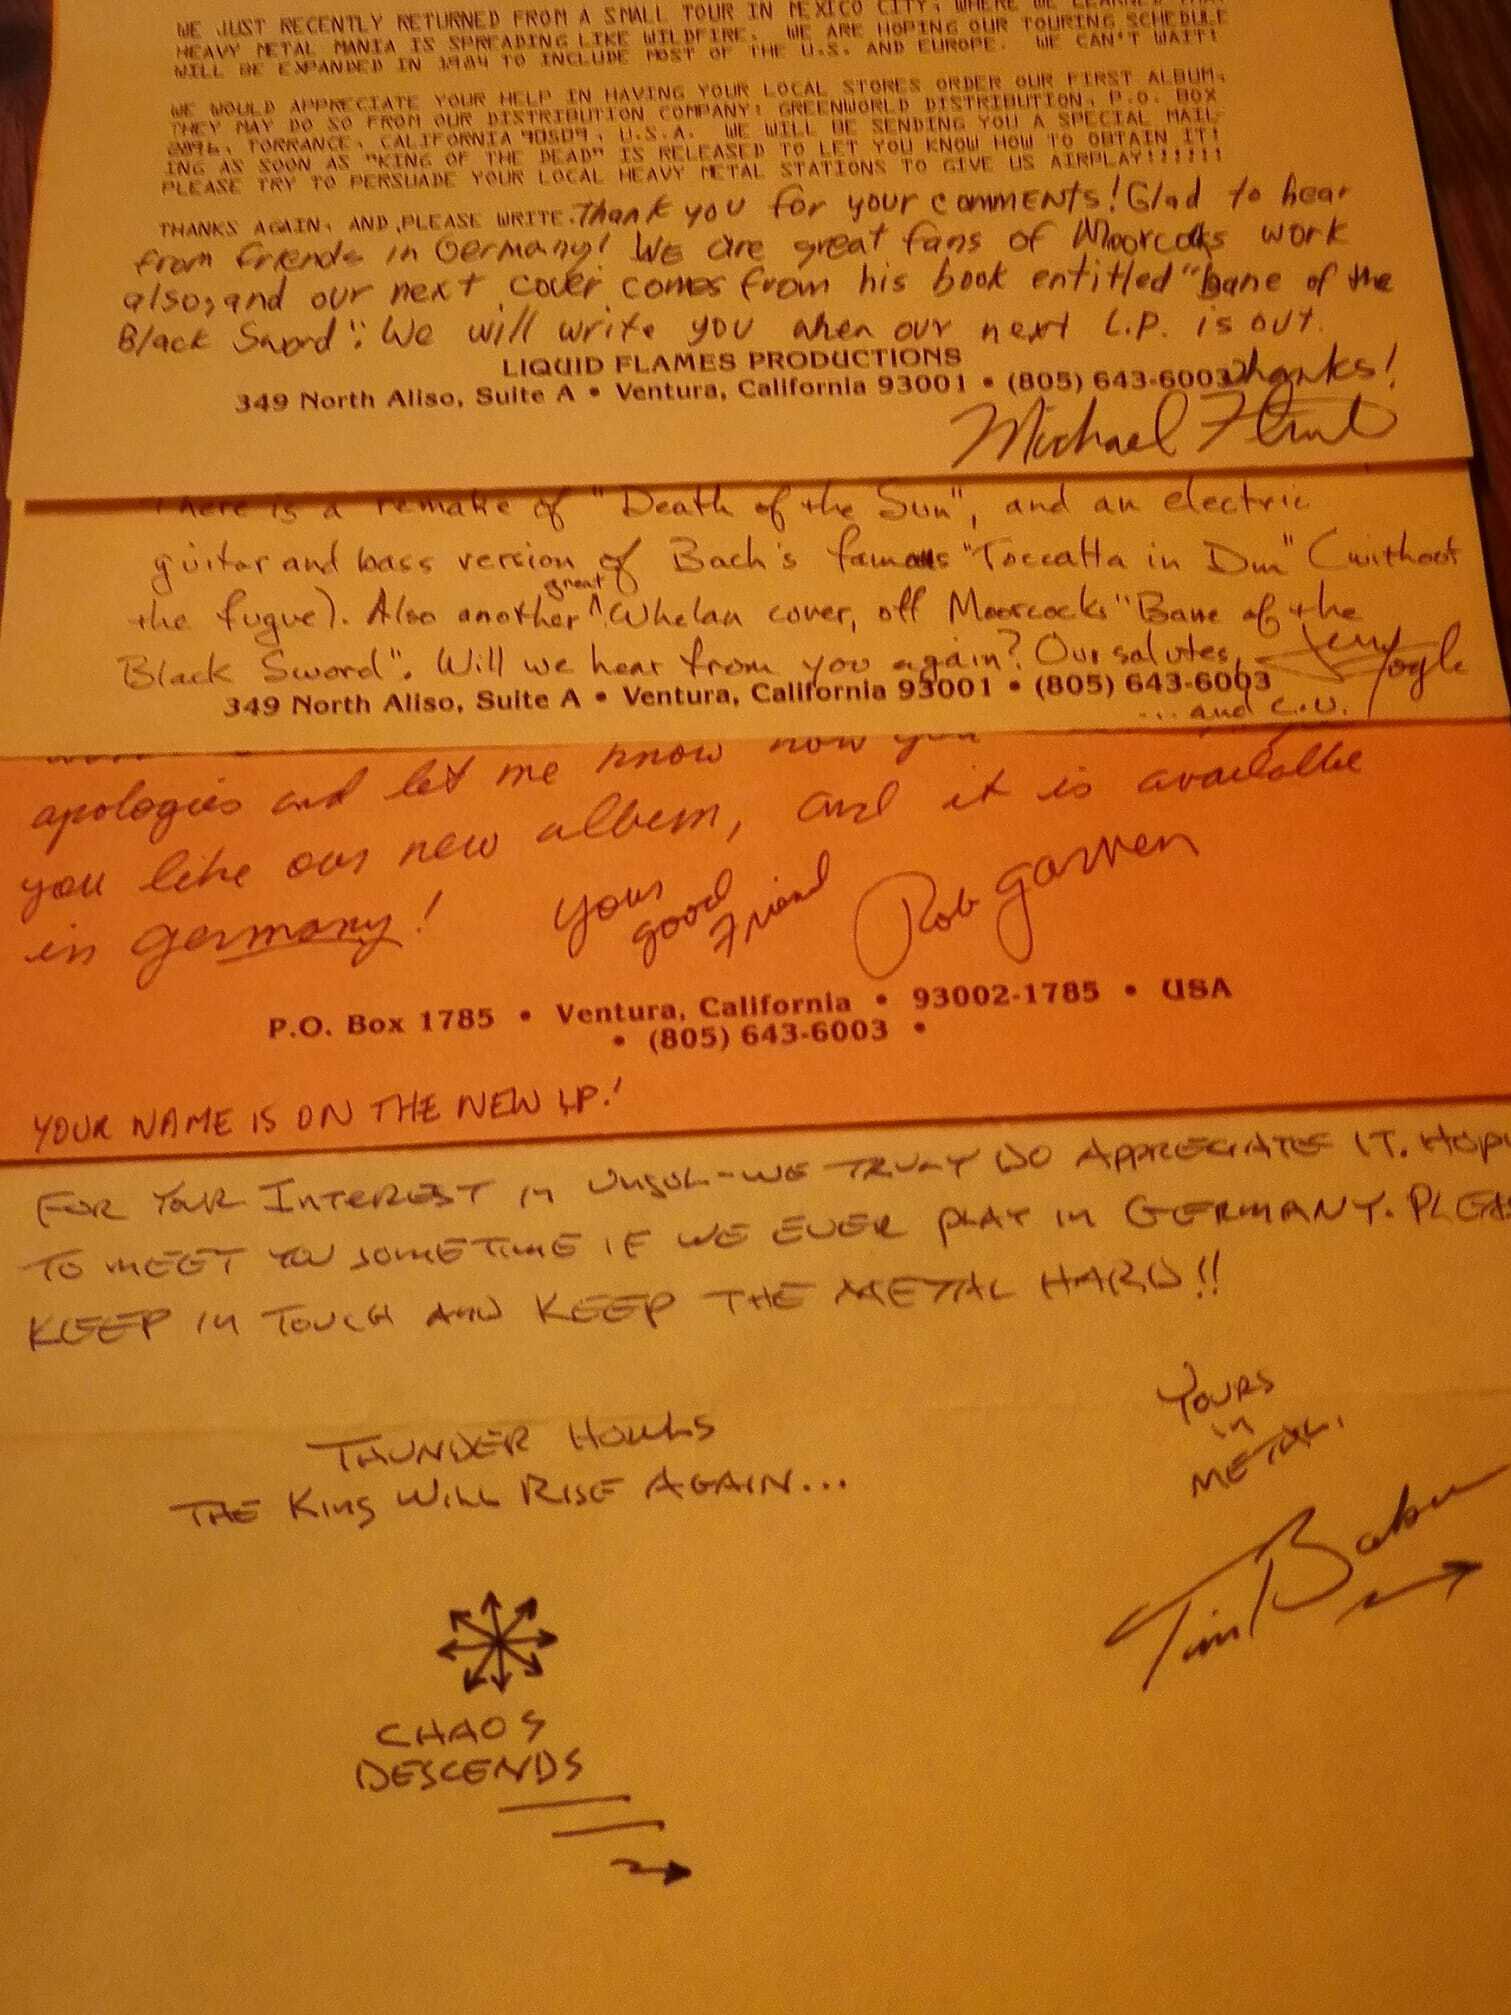 WE JUST RECENTLY RETURNED FROM A SMALL TOUR IN MEXICO CITY, WHERE WE LEARNED THAT
HEAVY METAL MANIA IS SPREADING LIKE WILDFIRE. WE ARE HOPING OUR TOURING SCHEDULE
WILL BE EXPANDED IN 1984 TO INCLUDE MOST OF THE U.S. AND EUROPE. WE CAN'T WAIT!
WE WOULD APPRECIATE YOUR HELP IN HAVING YOUR LOCAL STORES ORDER OUR FIRST ALBUM.
THEY MAY DO SO FROM OUR DISTRIBUTION COMPANY: GREENWORLD DISTRIBUTION, P.O. BOX
2896, TORRANCE, CALIFORNIA 90509, U.S.A. WE WILL BE SENDING YOU A SPECIAL MAIL-
ING AS SOON AS "KING OF THE DEAD" IS RELEASED TO LET YOU KNOW HOW TO OBTAIN IT!
PLEASE TRY TO PERSUADE YOUR LOCAL HEAVY METAL STATIONS TO GIVE US AIRPLAY!!!!!!
THANKS AGAIN, AND PLEASE WRITE. Thank you for your comments! Glad to hear
from friends in Germany! We are great fans of Moorcocks work
also, and our next cover comes from his book entitled "bane of the
Black Sword". We will write you when our next L.P. is out.
LIQUID FLAMES PRODUCTIONS
Thanks!
349 North Aliso, Suite A • Ventura, California 93001 • (805) 643-6003
Michael Flint
There is a remake of "Death of the Sun", and an electric
guitar and bass version of Bach's famous "Toccatta in Dm" (without
the fugue). Also another great Whelan cover, off Moorcocks "Bane of the
Black Sword". Will we hear from you again? Our salutes, Jerry Fogle
349 North Aliso, Suite A • Ventura, California 93001 • (805) 643-6003
... and C.U.
apologies and let me know how you
you like our new album, and it is availalbe
in Germany! Your good Friend Rob Garven
P.O. Box 1785 • Ventura, California • 93002-1785 • USA
• (805) 643-6003 •
YOUR NAME IS ON THE NEW LP.!
FOR YOUR INTEREST IN UNGOL-WE TRULY DO APPRECIATE IT. HOP
TO MEET YOU SOMETIME IF WE EVER PLAY IN GERMANY. PLEAS
KEEP IN TOUCH AND KEEP THE METAL HARD!!
THUNDER HOWLS
THE KING WILL RISE AGAIN...
YOURS
IN
METAL,
Tim Baker
CHAOS
DESCENDS